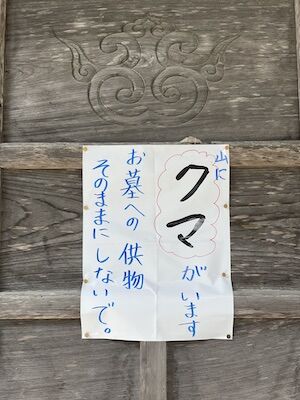 山に
クマ
がいます
お墓への供物
そのままにしないで。